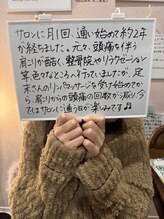 サロンに月1回、通い始めて約2年
が経ちました。元々、頭痛を伴う
肩こりが酷く、整骨院やリラクゼーション
等色々なところへ行っていましたが、定
末さんのリンパマッサージを受け始めてか
ら、肩こりからの頭痛の回数が減り、今
ではサロンに通う日が楽しみです♫